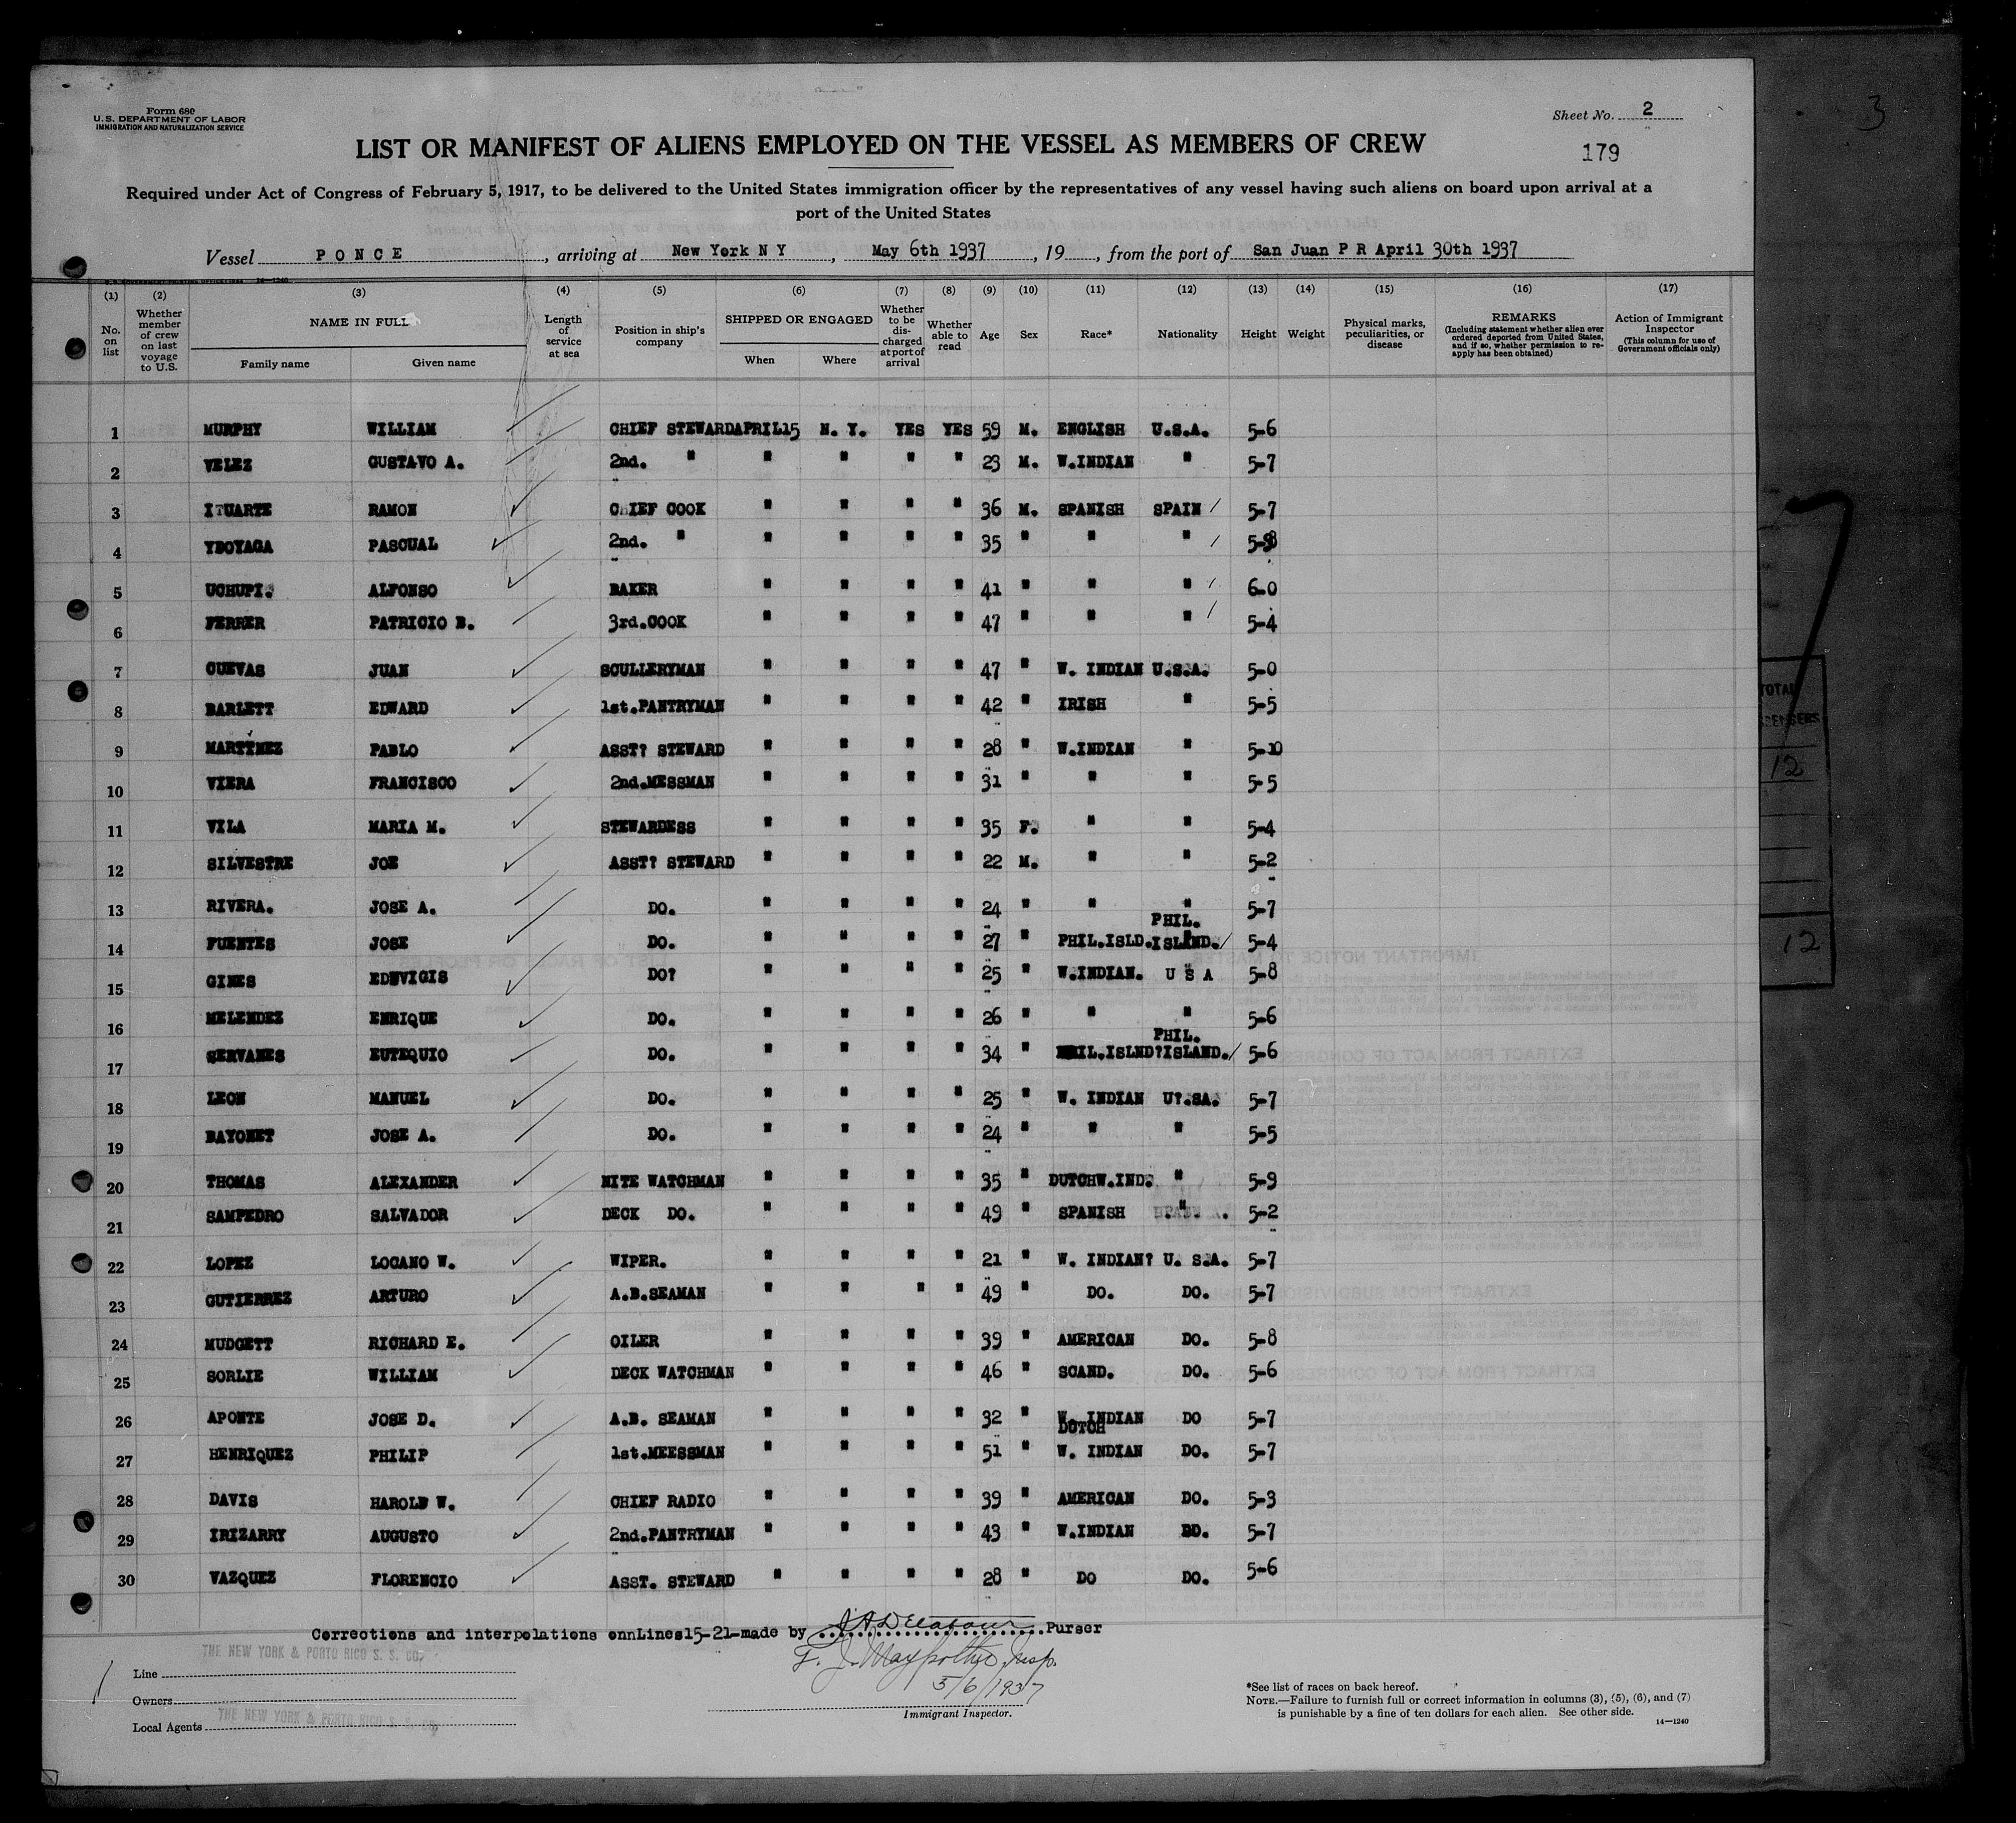 Form 680
U. S. DEPARTMENT OF LABOR
IMMIGRATION AND NATURALIZATION SERVICE
Sheet No. 2
179
3
LIST OR MANIFEST OF ALIENS EMPLOYED ON THE VESSEL AS MEMBERS OF CREW
Required under Act of Congress of February 5, 1917, to be delivered to the United States immigration officer by the representatives of any vessel having such aliens on board upon arrival at a
port of the United States
Vessel PONCE, arriving at New York N Y, May 6th 1937, 19, from the port of San Juan P R April 30th 1937
(1) (2) (3) (4) (5) (6) (7) (8) (9) (10) (11) (12) (13) (14) (15) (16) (17)
No. on list
Whether member of crew on last voyage to U.S.
NAME IN FULL
Family name
Given name
Length of service at sea
Position in ship's company
SHIPPED OR ENGAGED
When
Where
Whether to be discharged at port of arrival
Whether able to read
Age
Sex
Race*
Nationality
Height
Weight
Physical marks, peculiarities, or disease
REMARKS
(Including statement whether alien ever ordered deported from United States, and if so, whether permission to reapply has been obtained)
Action of Immigrant Inspector
(This column for use of Government officials only)
1 MURPHY WILLIAM CHIEF STEWARD APRIL15 N. Y. YES YES 59 M. ENGLISH U.S.A. 5-6
2 VELEZ GUSTAVO A. 2nd. " " " " " 23 M. W.INDIAN " 5-7
3 ITUARTE RAMON CHIEF COOK " " " " 36 M. SPANISH SPAIN 5-7
4 YBOYAGA PASCUAL 2nd. " " " " " 35 " " "
5 UCHUPI. ALFONSO BAKER " " " " 41 " " " 6-0
6 FERRER PATRICIO B. 3rd.COOK " " " " 47 " " " 5-4
7 CUEVAS JUAN SCULLERYMAN " " " " 47 " W. INDIAN U.S.A. 5-0
8 BARLETT EDWARD 1st.PANTRYMAN " " " " 42 " IRISH " 5-5
9 MARTYNEZ PABLO ASST? STEWARD " " " " 28 " W.INDIAN " 5-10
10 VIERA FRANCISCO 2nd.MESSMAN " " " " 31 " " " 5-5
11 VILA MARIA M. STEWARDESS " " " " 35 F. " " 5-4
12 SILVESTRE JOE ASST? STEWARD " " " " 22 M. " " 5-2
13 RIVERA. JOSE A. DO. " " " " 24 " " " 5-7
14 FUENTES JOSE DO. " " " " 27 " PHIL.ISLD. PHIL. ISLAND. 5-4
15 GINES EDWVIGIS DO? " " " " 25 " W.INDIAN. U S A 5-8
16 MELENDEZ ENRIQUE DO. " " " " 26 " " " 5-6
17 SERVANES EUTEQUIO DO. " " " " 34 " PHIL.ISLND? PHIL. ISLAND. 5-6
18 LEON MANUEL DO. " " " " 25 " W. INDIAN U?.SA. 5-7
19 BAYONET JOSE A. DO. " " " " 24 " " " 5-5
20 THOMAS ALEXANDER NITE WATCHMAN " " " " 35 " DUTCHW.IND. " 5-9
21 SAMPEDRO SALVADOR DECK DO. " " " " 49 " SPANISH " 5-2
22 LOPEZ LOCANO W. WIPER. " " " " 21 " W. INDIAN? U. S.A. 5-7
23 GUTIERREZ ARTURO A.B.SEAMAN " " " " 49 " DO. DO. 5-7
24 MUDGETT RICHARD E. OILER " " " " 39 " AMERICAN DO. 5-8
25 SORLIE WILLIAM DECK WATCHMAN " " " " 46 " SCAND. DO. 5-6
26 APONTE JOSE D. A.B. SEAMAN " " " " 32 " W. INDIAN DO 5-7
27 HENRIQUEZ PHILIP 1st.MEESSMAN " " " " 51 " DUTCH W. INDIAN DO. 5-7
28 DAVIS HAROLD W. CHIEF RADIO " " " " 39 " AMERICAN DO. 5-3
29 IRIZARRY AUGUSTO 2nd.PANTRYMAN " " " " 43 " W.INDIAN DO. 5-7
30 VAZQUEZ FLORENCIO ASST. STEWARD " " " " 28 " DO DO. 5-6
Corrections and interpolations onnLines15-21-made by Purser
Line THE NEW YORK & PORTO RICO S. S. CO.
Owners
Local Agents THE NEW YORK & PORTO RICO S. S. CO.
F. J. Insp.
5/6/1937
Immigrant Inspector.
*See list of races on back hereof.
NOTE.—Failure to furnish full or correct information in columns (3), (5), (6), and (7)
is punishable by a fine of ten dollars for each alien. See other side.
14—1240
TOTAL
12
12